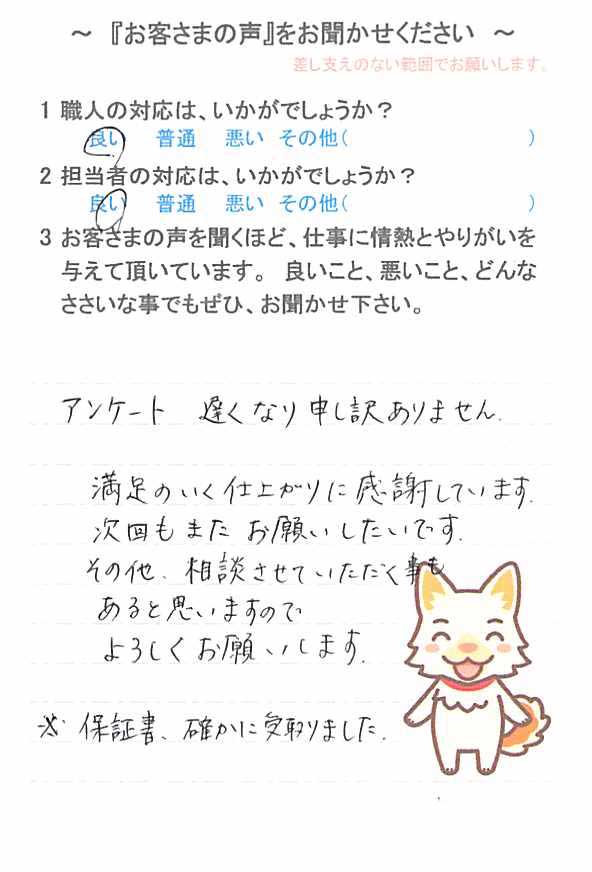 ～ 『お客さまの声』をお聞かせください ～
差し支えのない範囲でお願いします。
1 職人の対応は、いかがでしょうか？
良い 普通 悪い その他( )
2 担当者の対応は、いかがでしょうか？
良い 普通 悪い その他( )
3 お客さまの声を聞くほど、仕事に情熱とやりがいを
与えて頂いています。 良いこと、悪いこと、どんな
ささいな事でもぜひ、お聞かせ下さい。
アンケート 遅くなり申し訳ありません.
満足のいく仕上がりに感謝しています.
次回もまたお願いしたいです.
その他、相談させていただく事も
あると思いますので
よろしくお願いします.
※ 保証書、確かに受取りました.